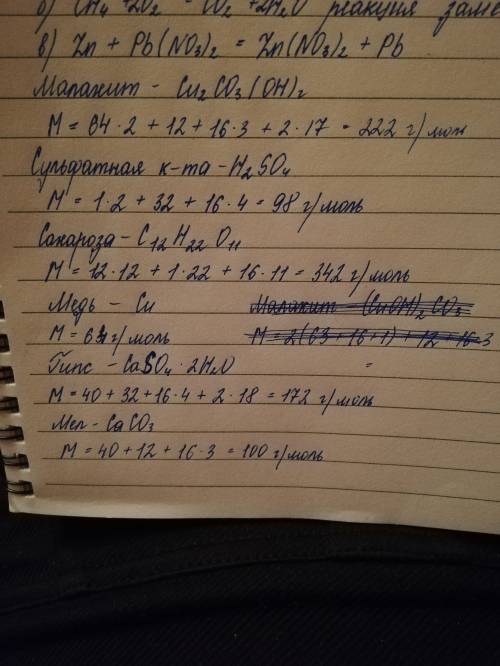 б) CH₄ + 2O₂ = CO₂ + 2H₂O реакция заме
в) Zn + Pb(NO₃)₂ = Zn(NO₃)₂ + Pb
Малахит - Cu₂CO₃(OH)₂
M = 64·2 + 12 + 16·3 + 2·17 = 222 г/мол
Сульфатная к-та - H₂SO₄
M = 1·2 + 32 + 16·4 = 98 г/моль
Сахароза - C₁₂H₂₂O₁₁
M = 12·12 + 1·22 + 16·11 = 342 г/моль
Медь - Cu Малахит - (CuOH)₂CO₃
M = 64 г/моль M = 2(63+16+1) + 12 + 16·3
Гипс - CaSO₄·2H₂O =
M = 40 + 32 + 16·4 + 2·18 = 172 г/моль
Мел - CaCO₃
M = 40 + 12 + 16·3 = 100 г/моль